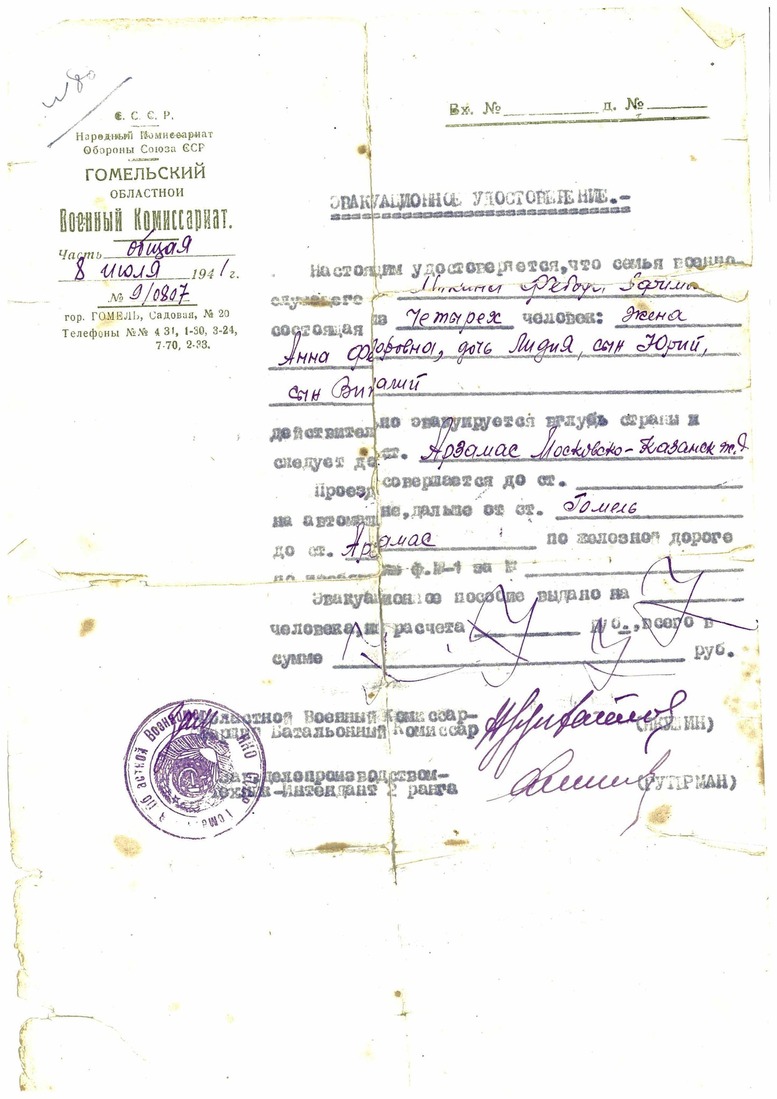 С. С. С. Р.
Народный Комиссариат
Обороны Союза ССР
ГОМЕЛЬСКИЙ
ОБЛАСТНОЙ
Военный Комиссариат.
Часть общая
8 июля 1941 г.
№ 9/0807
гор. ГОМЕЛЬ, Садовая, № 20
Телефоны №№ 4 31, 1-30, 3-24,
7-70, 2-33.
Вх. № д. №
ЭВАКУАЦИОННОЕ УДОСТОВЕРЕНИЕ.-
Настоящим удостоверяется, что семья военно-
служащего
состоящая из Четарех человек: жена
Анна Федоровна, дочь Лидия, сын Юрий,
сын Виталий
действительно эвакуируется вглубь страны и
следует до ст. Арзамас Московско-Казанск ж.д
Проезд совершается до ст.
на автомашине, дальше от ст. Гомель
до ст. Арзамас по железной дороге
ф.№-1 за №
Эвакуационное пособие выдано на
человека, из расчета руб., всего в
сумме руб.
Областной Военный Комиссар-
Батальонный Комиссар
делопроизводством-
Техник-Интендант 2 ранга